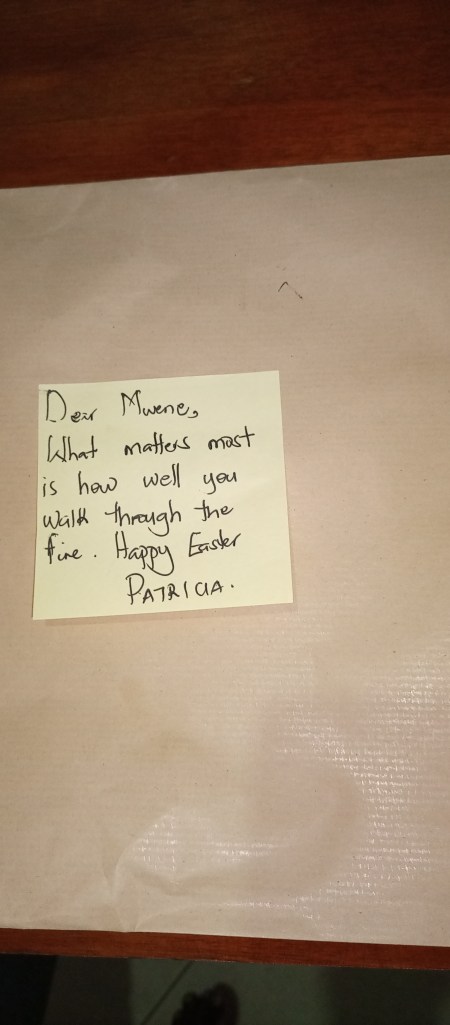 Dear Mwene,
What matters most
is how well you
walk through the
fire. Happy Easter
PATRICIA.